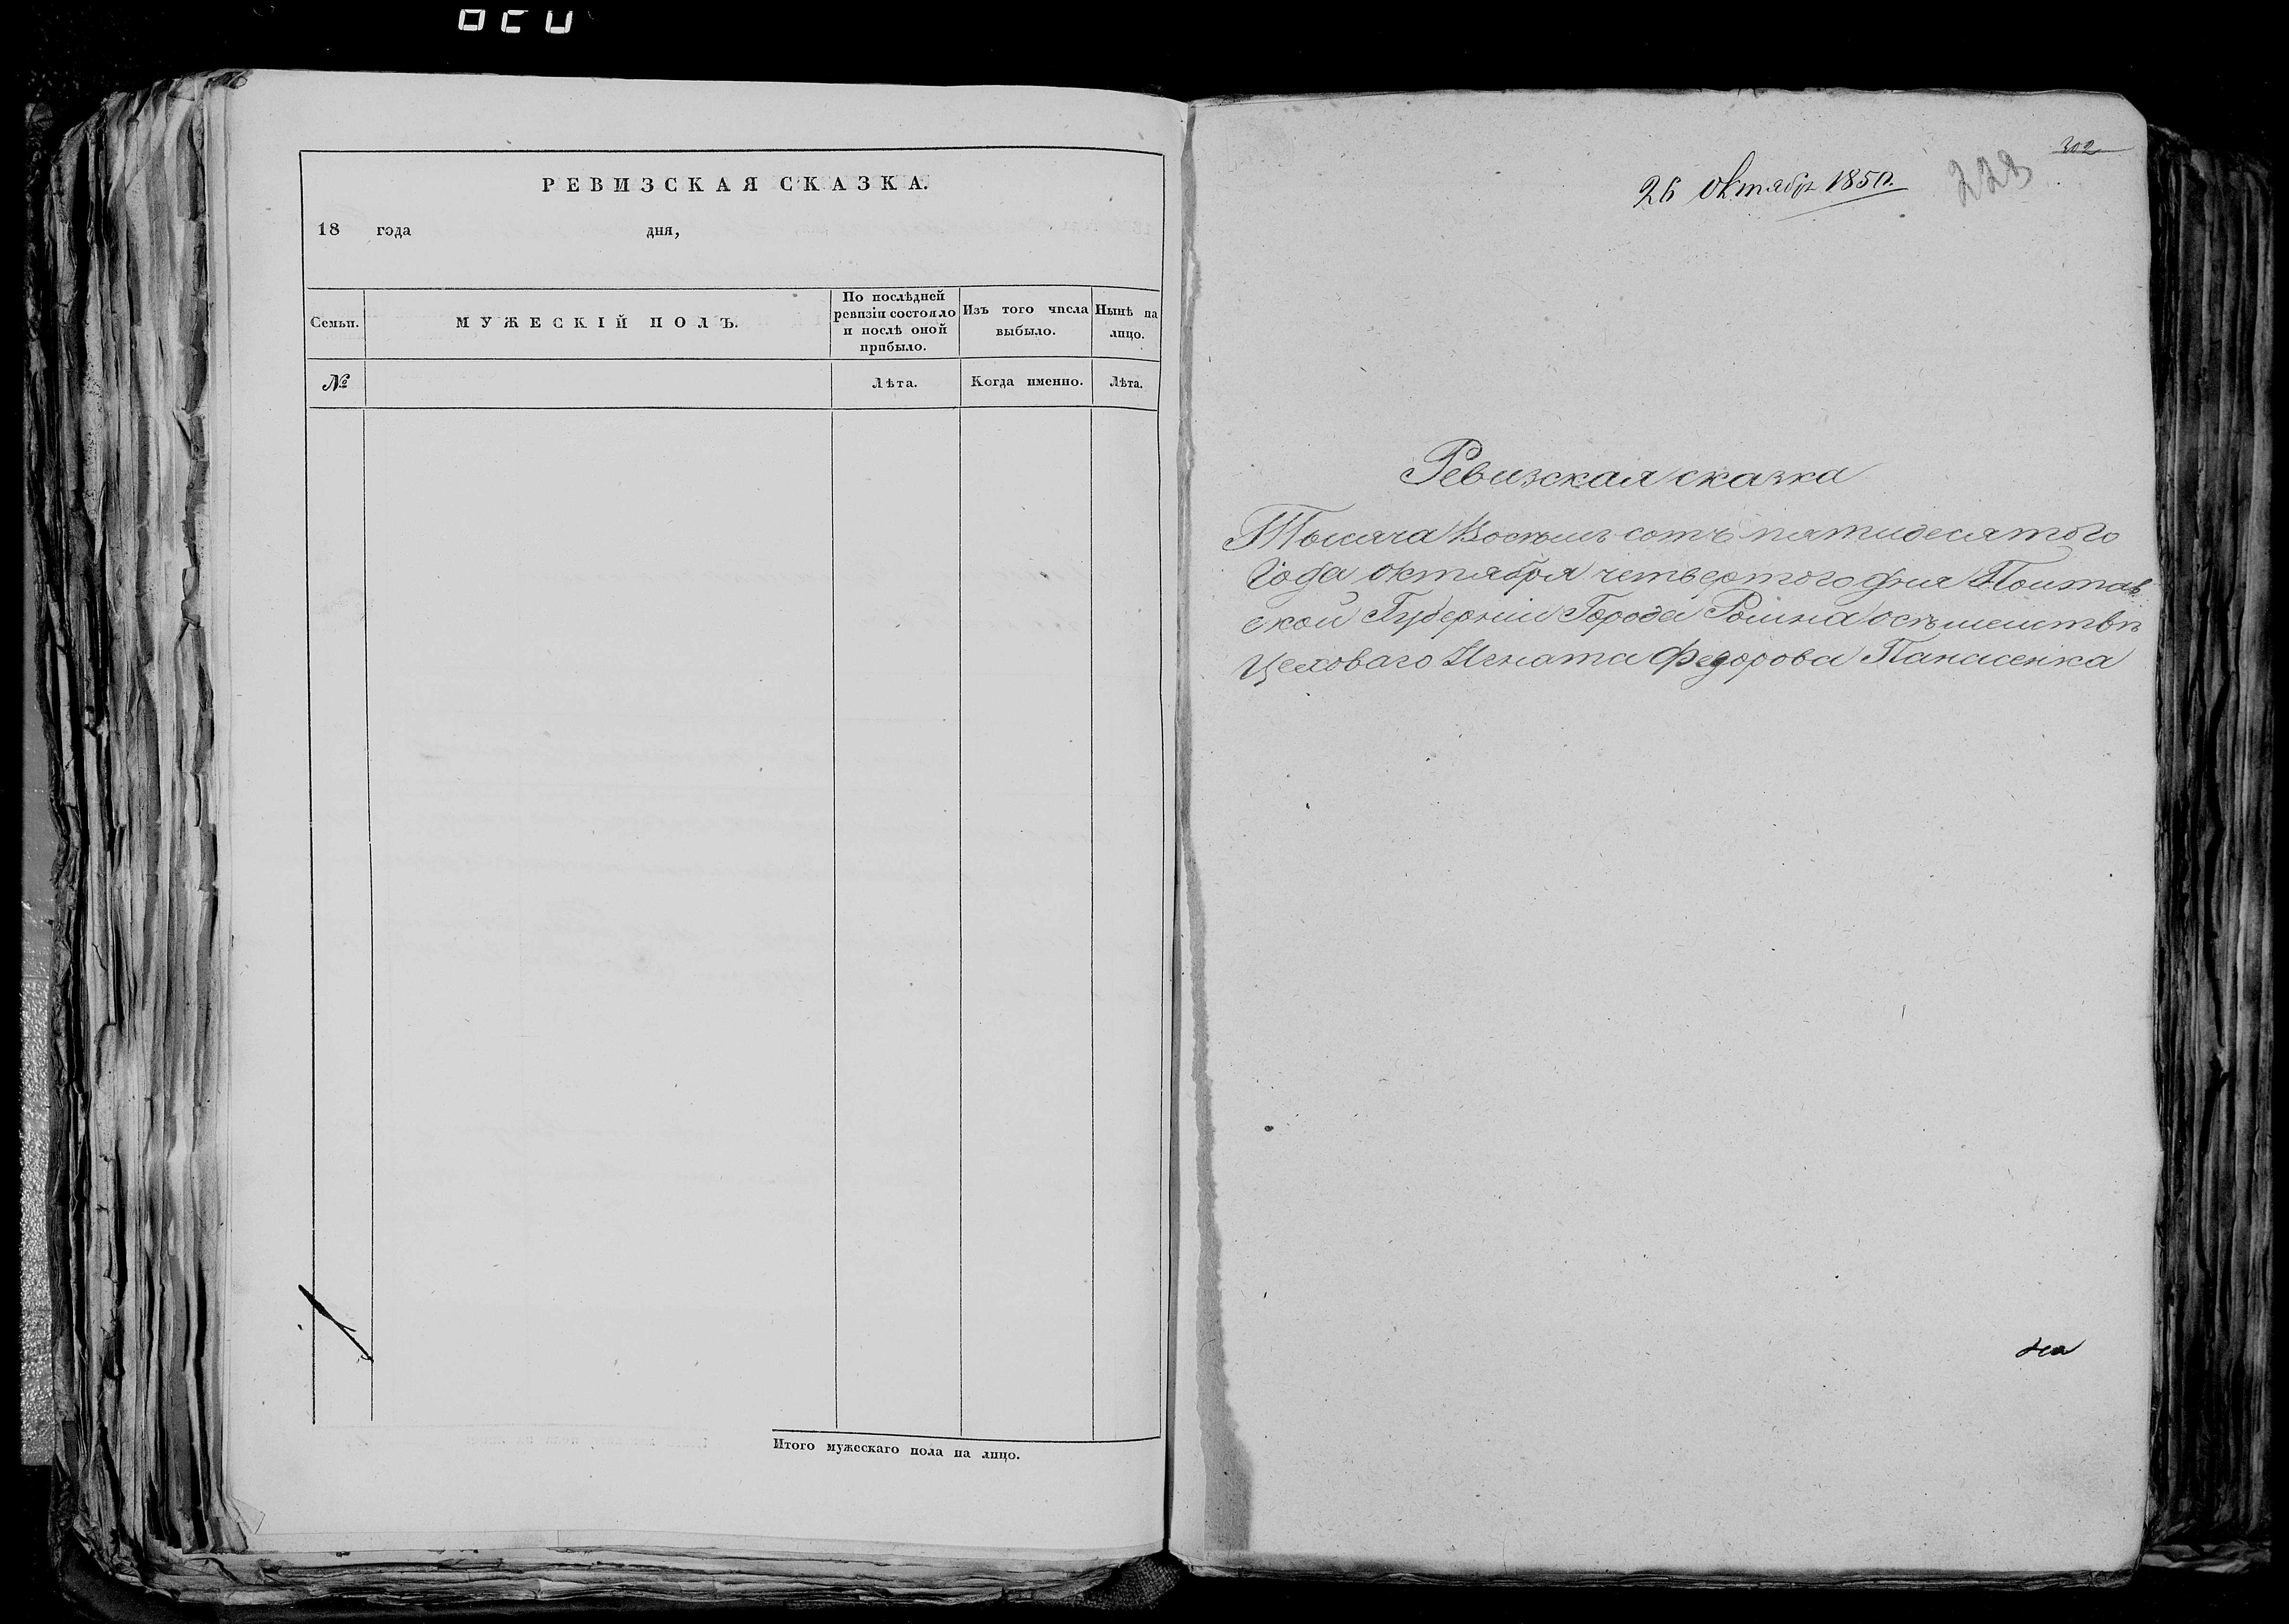 РЕВИЗСКАЯ СКАЗКА.
18 года дня,
Семьи.
МУЖЕСКІЙ ПОЛЪ.
По послѣдней
ревизіи состояло
и послѣ оной
прибыло.
Изъ того числа
выбыло.
Нынѣ на
лицо.
№
Лѣта.
Когда именно.
Лѣта.
Итого мужескаго пола на лицо.
302
228
26 октября 1850.
Ревизская сказка
Тысяча Восемь сотъ пятидесятого
Года октября четвертого дня Полтав
ской Губерніи Города Ромна
Цеховаго Игната Федорова Панасенка